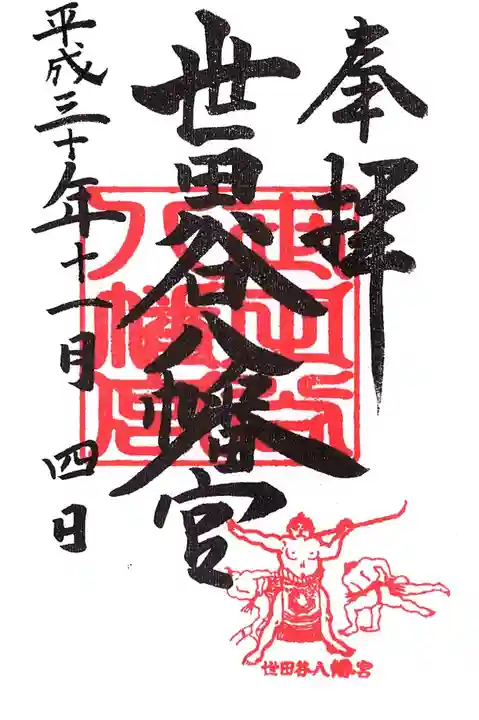 奉拝
世田谷八幡宮
平成三十年十一月四日
世田谷
八幡宮
世田谷八幡宮